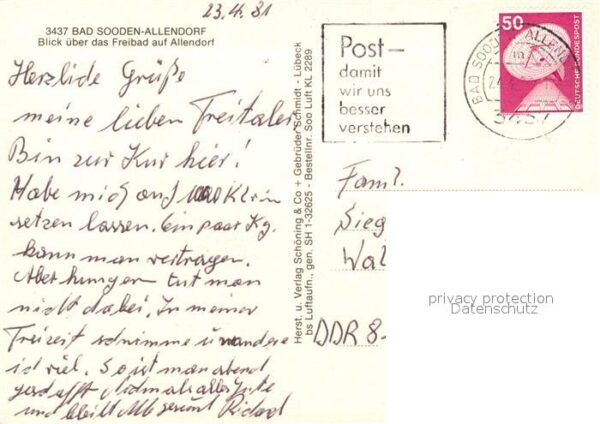 23.4.81
3437 BAD SOODEN-ALLENDORF
Blick über das Freibad auf Allendorf
Herzliche Grüße
meine lieben Freitaler
Bin zur Kur hier!
Habe mich auf 1000 Klrin
setzen lassen. Ein paar Kg.
kann man vertragen.
Aber hungern tut man
nicht dabei. In meiner
Freizeit schwimme u wandere
ich viel. So ist man abend
geschafft Nochmals alles Gute
und bleibt alle gesund Richard
Herst. u. Verlag Schöning & Co + Gebrüder Schmidt - Lübeck
bs Luftaufn., gen. SH 1-32625 - Bestellnr. Soo Luft KL 2289
Post-
damit
wir uns
besser
verstehen
BAD SOODEN-ALLEND
3437
50
DEUTSCHE BUNDESPOST
Faml.
Sieg
Wal
DDR 8-
privacy protection
Datenschutz